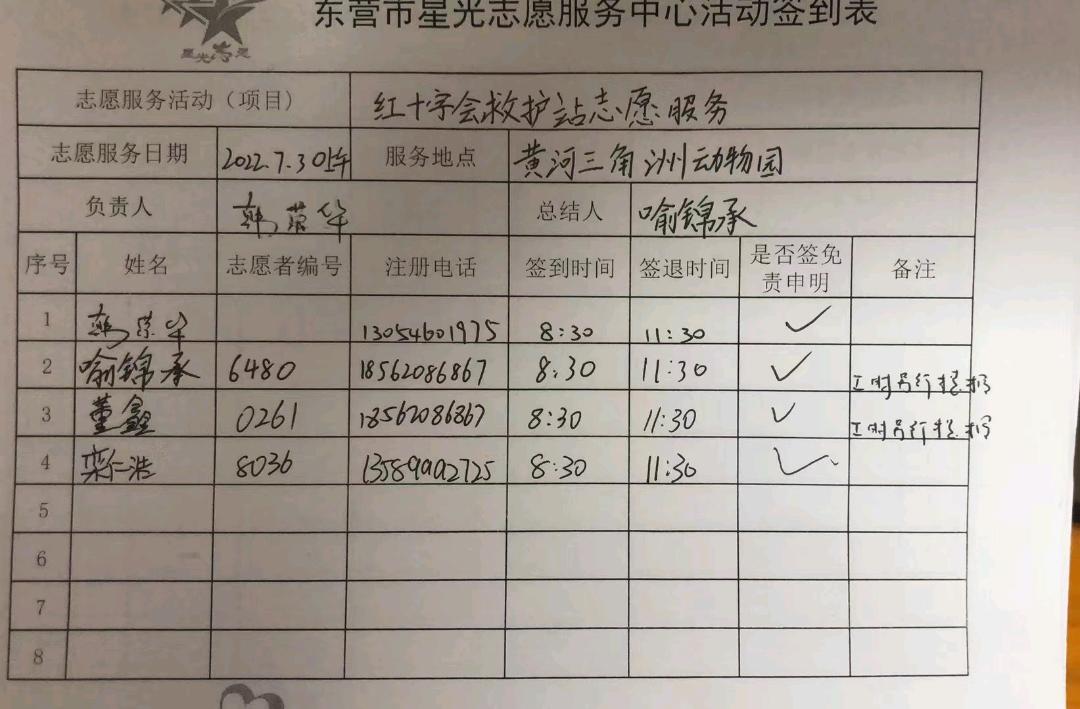 东营市星光志愿服务中心活动签到表
星光志愿
志愿服务活动（项目） 红十字会救护站志愿服务
志愿服务日期 2022.7.30上午 服务地点 黄河三角洲动物园
负责人 韩荣华 总结人 喻锦承
序号 姓名 志愿者编号 注册电话 签到时间 签退时间 是否签免责申明 备注
1 韩荣华 13054601975 8:30 11:30 ✓
2 喻锦承 6480 18562086867 8:30 11:30 ✓ 工时另行提报
3 董鑫 0261 18562086867 8:30 11:30 ✓ 工时另行提报
4 栾仁浩 8036 13589992725 8:30 11:30 ✓
5
6
7
8